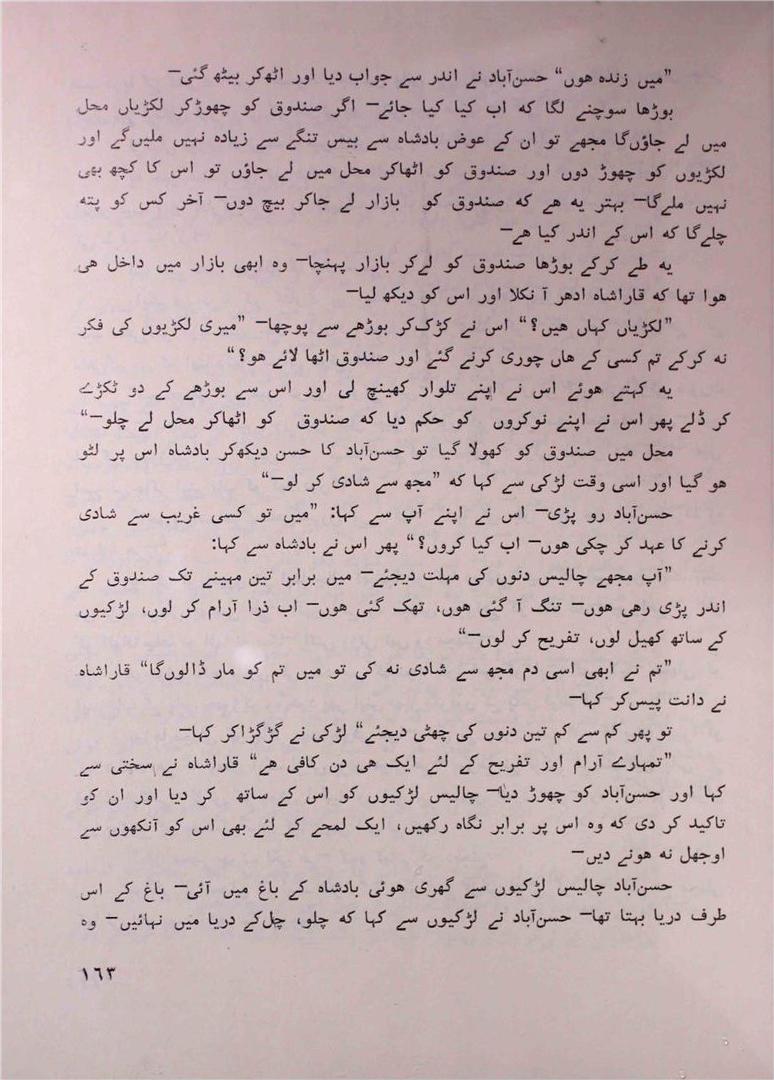 ”میں زندہ ھوں“ حسن‌آباد نے اندر سے جواب دیا اور اٹھ‌کر بیٹھ گئی—
بوڑھا سوچنے لگا که اب کیا کیا جائے— اگر صندوق کو چھوڑکر لکڑیاں محل
میں لے جاؤں‌گا مجھے تو ان کے عوض بادشاہ سے بیس تنگے سے زیادہ نہیں ملیں‌گے اور
لکڑیوں کو چھوڑ دوں اور صندوق کو اٹھاکر محل میں لے جاؤں تو اس کا کچھ بھی
نہیں ملے‌گا— بہتر یه ھے که صندوق کو بازار لے جاکر بیچ دوں— آخر کس کو پته
چلے‌گا که اس کے اندر کیا ھے—
یه طے کرکے بوڑھا صندوق کو لے‌کر بازار پہنچا— وہ ابھی بازار میں داخل ھی
ھوا تھا که قاراشاہ ادھر آ نکلا اور اس کو دیکھ لیا—
”لکڑیاں کہاں ھیں؟“ اس نے کڑک‌کر بوڑھے سے پوچھا— ”میری لکڑیوں کی فکر
نه کرکے تم کسی کے ھاں چوری کرنے گئے اور صندوق اٹھا لائے ھو؟“
یه کہتے ھوئے اس نے اپنے تلوار کھینچ لی اور اس سے بوڑھے کے دو ٹکڑے
کر ڈلے پھر اس نے اپنے نوکروں کو حکم دیا که صندوق کو اٹھاکر محل لے چلو—“
محل میں صندوق کو کھولا گیا تو حسن‌آباد کا حسن دیکھ‌کر بادشاہ اس پر لٹو
ھو گیا اور اسی وقت لڑکی سے کہا که ”مجھ سے شادی کر لو—“
حسن‌آباد رو پڑی— اس نے اپنے آپ سے کہا: ”میں تو کسی غریب سے شادی
کرنے کا عہد کر چکی ھوں— اب کیا کروں؟“ پھر اس نے بادشاہ سے کہا:
”آپ مجھے چالیس دنوں کی مہلت دیجئے— میں برابر تین مہینے تک صندوق کے
اندر پڑی رھی ھوں— تنگ آ گئی ھوں، تھک گئی ھوں— اب ذرا آرام کر لوں، لڑکیوں
کے ساتھ کھیل لوں، تفریح کر لوں—“
”تم نے ابھی اسی دم مجھ سے شادی نه کی تو میں تم کو مار ڈالوں‌گا“ قاراشاہ
نے دانت پیس‌کر کہا—
تو پھر کم سے کم تین دنوں کی چھٹی دیجئے“ لڑکی نے گڑگڑاکر کہا—
”تمہارے آرام اور تفریح کے لئے ایک ھی دن کافی ھے“ قاراشاہ نے سختی سے
کہا اور حسن‌آباد کو چھوڑ دیا— چالیس لڑکیوں کو اس کے ساتھ کر دیا اور ان کو
تاکید کر دی که وہ اس پر برابر نگاہ رکھیں، ایک لمحے کے لئے بھی اس کو آنکھوں سے
اوجھل نه ھونے دیں—
حسن‌آباد چالیس لڑکیوں سے گھری ھوئی بادشاہ کے باغ میں آئی— باغ کے اس
طرف دریا بہتا تھا— حسن‌آباد نے لڑکیوں سے کہا که چلو، چل‌کے دریا میں نہائیں— وہ
١٦٣